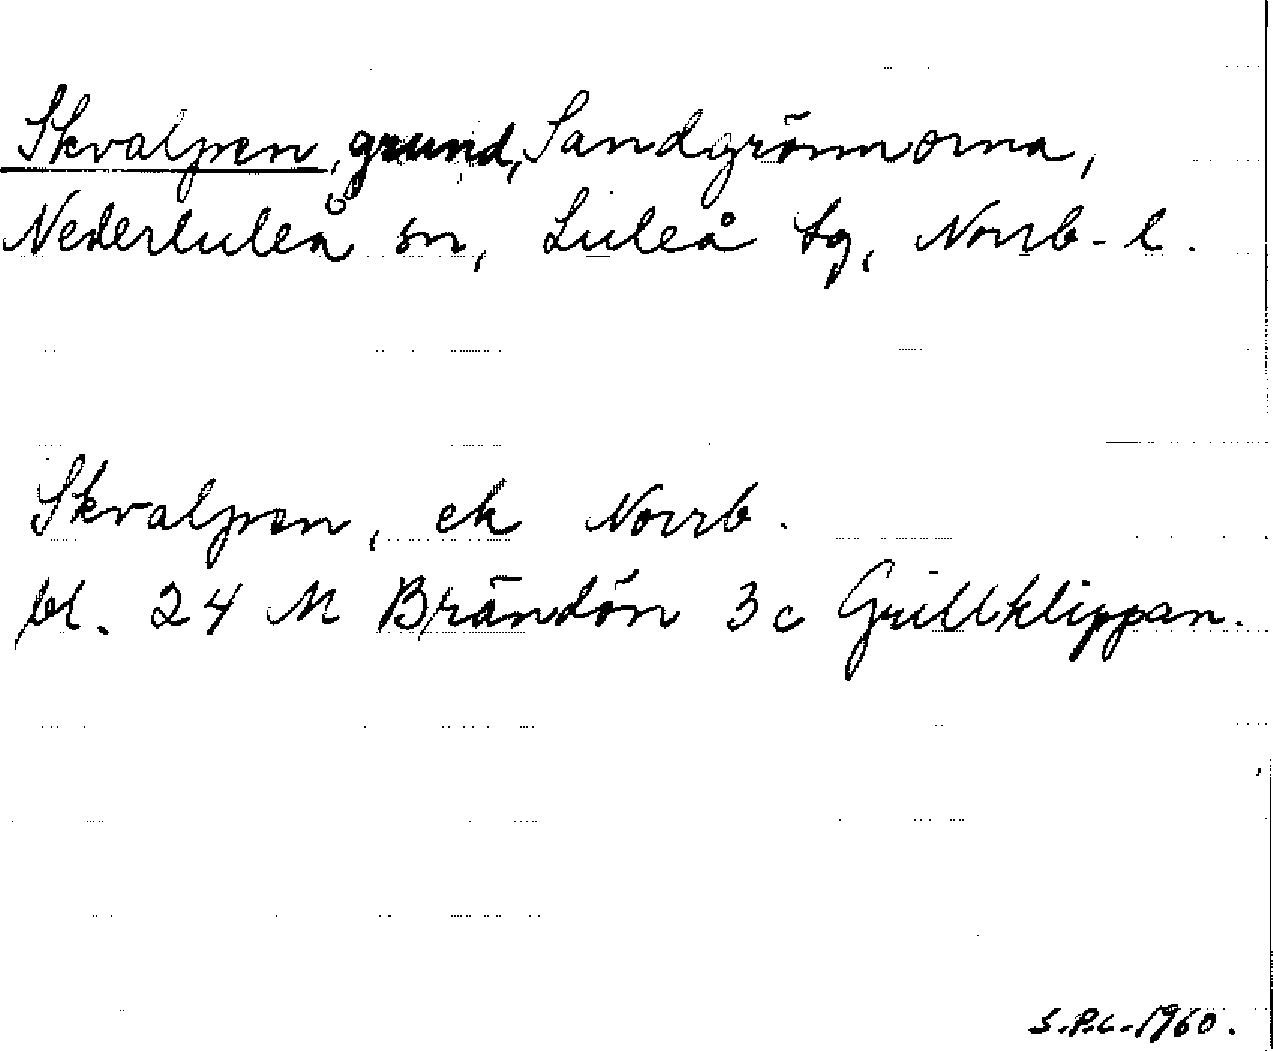 Skvalpen, grund, Sandgrönnorna,
Nederluleå sn, Luleå tg, Norrb. l.
Skvalpen, ek Norrb.
bl. 24 M Brändön 3c Grillklippan.
S.P.L. 1960.